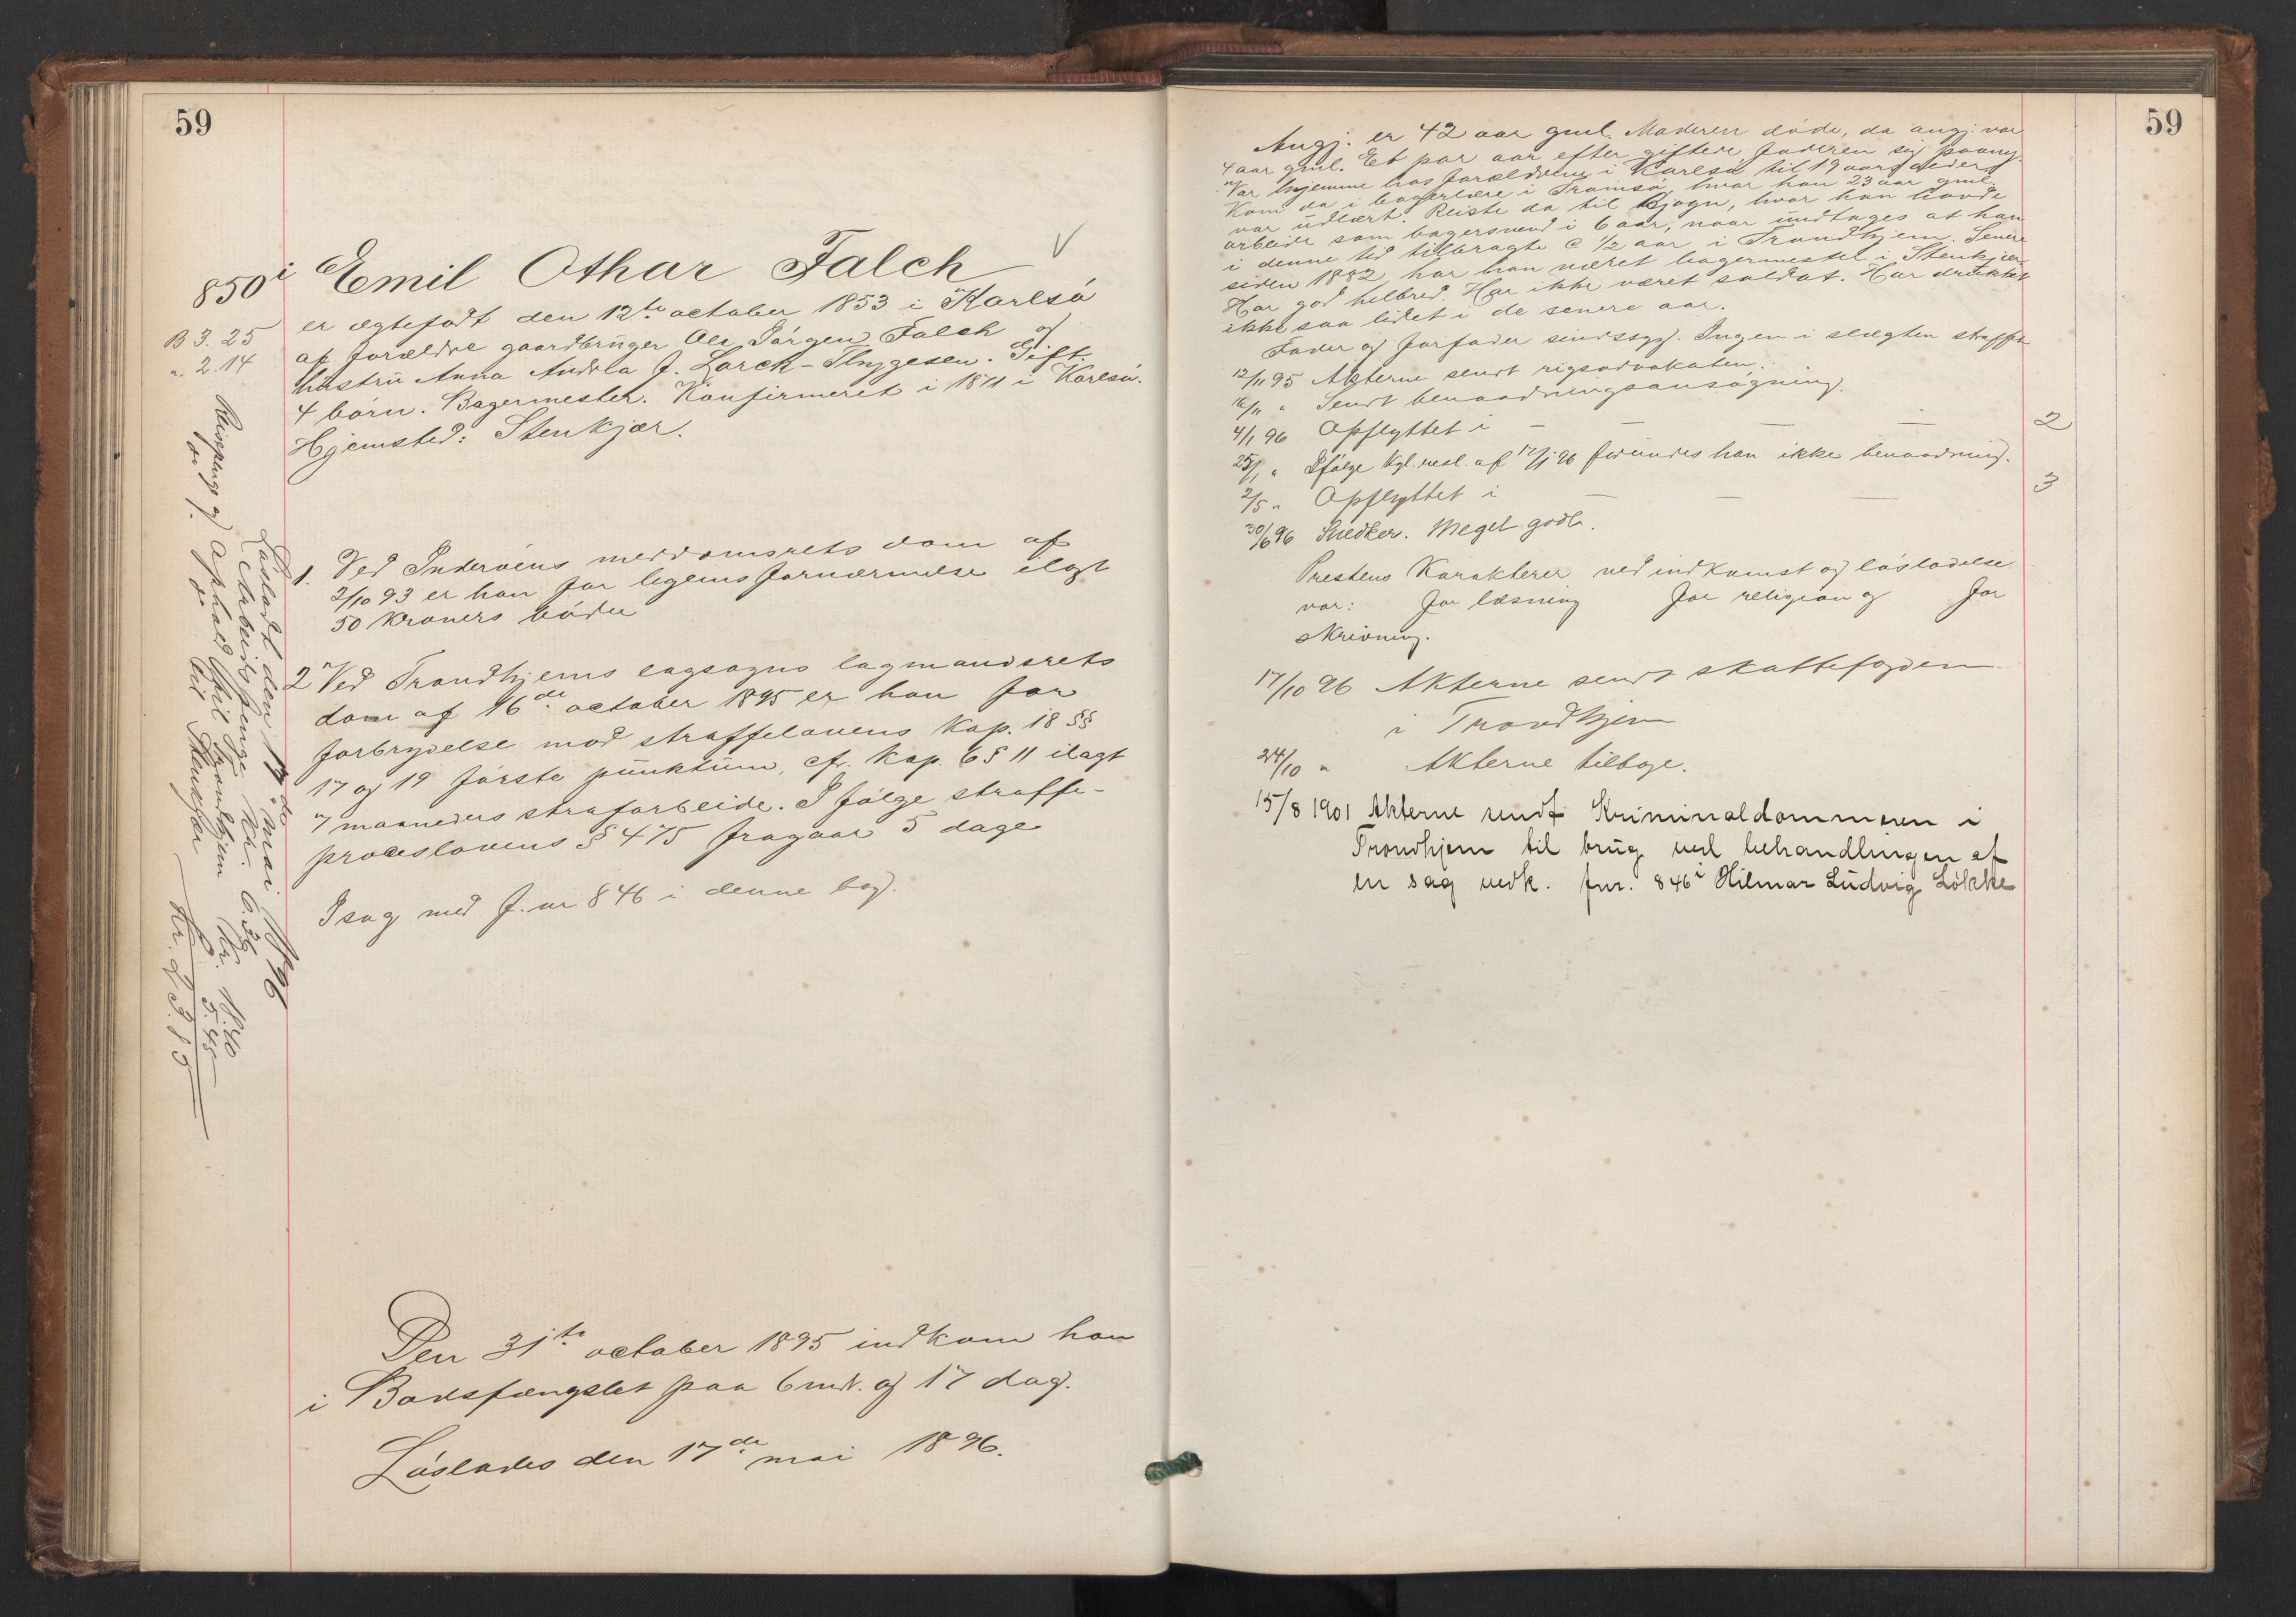 59
850 i Emil Othar Falch
B 3. 25
" 2. 14
er ægtefødt den 12te october 1853 i Karlsö
af forældre gaardbruger Ole Jørgen Falch og
hustrü Anna Andrea f. Lorck-Thygesen. Gift.
4 börn. Bagermester. Konfirmeret i 1871 i Karlsö.
Hjemsted: Stenkjær.
1. Ved Inderöens meddomsrets dom af
2/10 93 er han for legemsfornærmelse ilagt
50 kroners böder
2 Ved Trondhjems lagsogns lagmandsrets
dom af 16de october 1895 er han for
forbrydelse mod straffelovens Kap. 18 §§
17 og 19 förste pünktüm, cfr. Kap. 6 § 11 ilagt
7 maaneders strafarbeide. I fölge straffe-
proceslovens § 475 fragaar 5 dage
I sag med f.nr 846 i denne bog.
Löslodt den 17de mai 1896
Arbeidspenge Kr. 6.36
Reisepenge og ophold til Trondhjem Kr.
do. do. til Stenkjær
Kr.
Den 31te october 1895 indkom han
i Bodsfængslet paa 6 md. og 17 dag.
Löslodes den 17de mai 1896.
59
Angj. er 42 aar gml. Moderen döde, da angj. var
4 aar gml. Et par aar efter giftede faderen sig paany.
Var hjemme hos forældrene i Karlsö til 19 aars alder.
Kom da i bagerlære i Tromsö, hvor han 23 aar gml.
var üdlært. Reiste da til Bjugn, hvor han havde
arbeide som bagersvend i 6 aar, naar undtages at han
i denne tid tilbragte c 1/2 aar i Trondhjem. Senere
siden 1882 har han været bagermester i Stenkjær.
Har god helbred. Har ikke været soldat. Har drukket
ikke saa lidet i de senere aar.
Fader og farfader sindssyg. Ingen i slægten straffet
12/11 95 Akterne sendt rigsadvokaten.
16/11 " Sendt benaadningsansögning.
4/1 96 Opflyttet i — — — — 2
25/1 " Ifölge kgl. resl. af 17/1 96 forundes han ikke benaadning.
2/5 " Opflyttet i — — — 3
30/6 96 Snedker. Meget godt.
Prestens Karakterer ved indkomst og lösladelse
var: for læsning for religion og for
skrivning.
17/10 96 Akterne sendt skattefogden
i Trondhjem
24/10 " Akterne tilbage.
15/8 1901 Akterne sendt Kriminaldommeren i
Trondhjem til brüg ved behandlingen af
en sag vedk. fnr. 846 i Hilmar Lüdvig Lökke